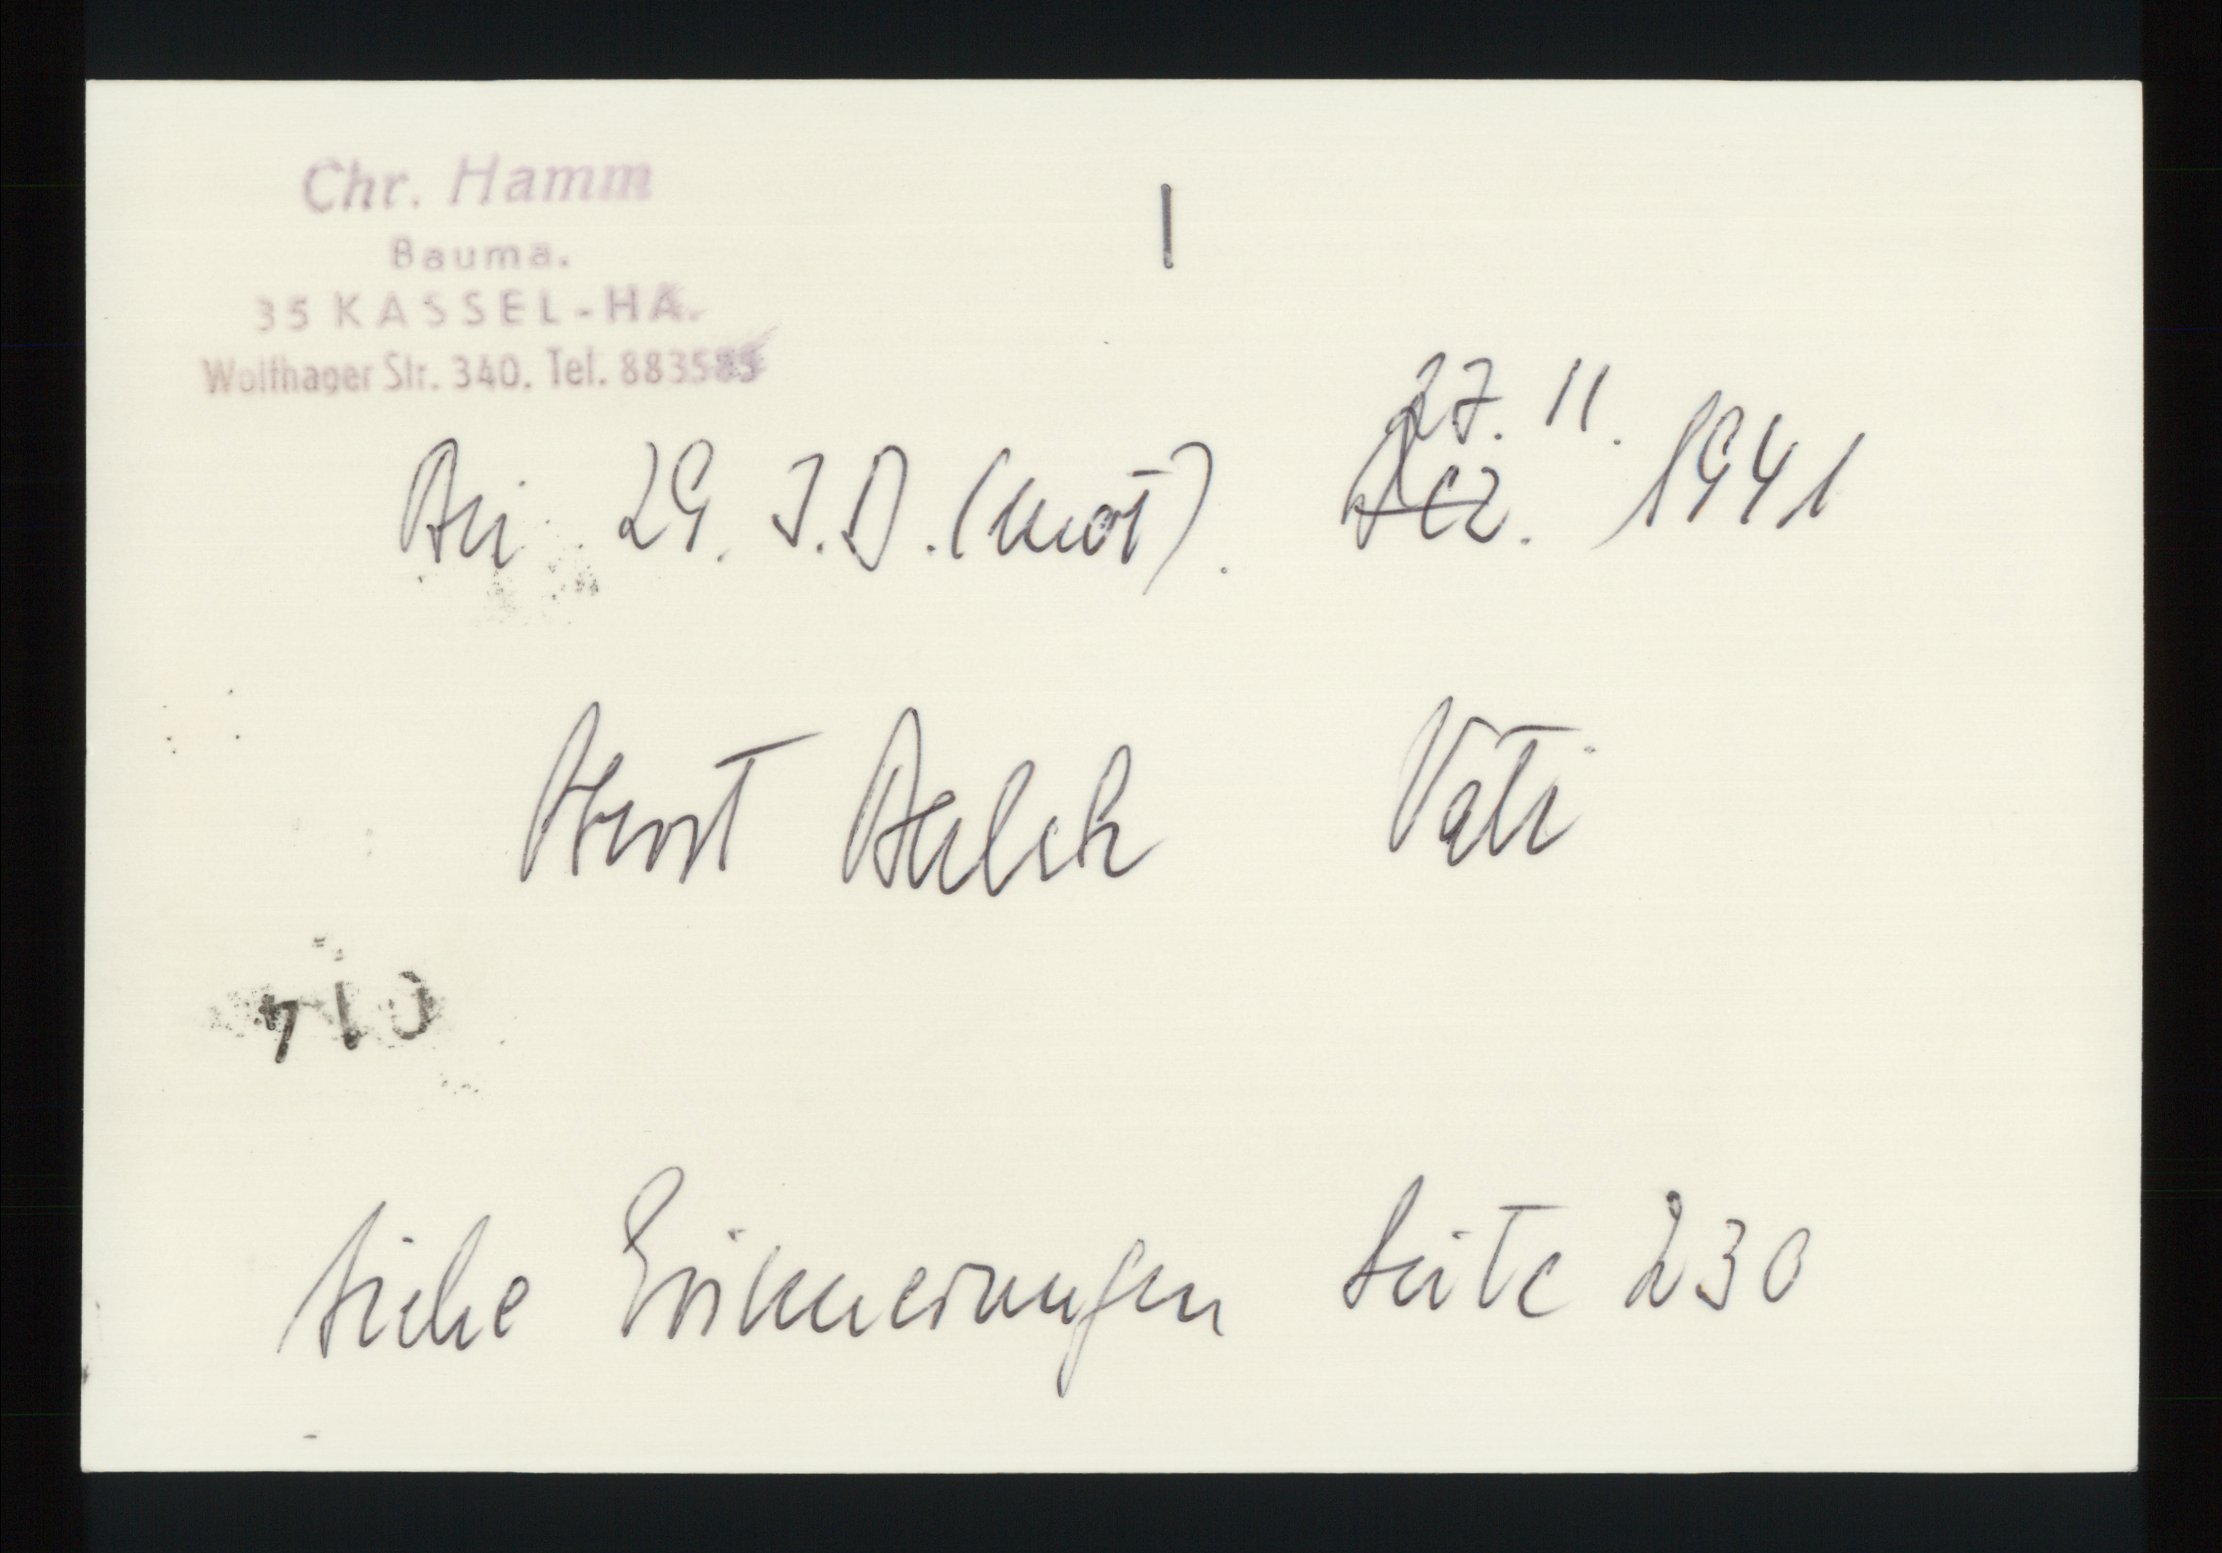 Chr. Hamm
Bauma.
35 KASSEL-HA.
Wolfhager Str. 340. Tel. 883585
I
27. 11.
Bei 29. I.D. (mot). Dez. 1941
Horst Vati
014
Siehe Erinnerungen Seite 230